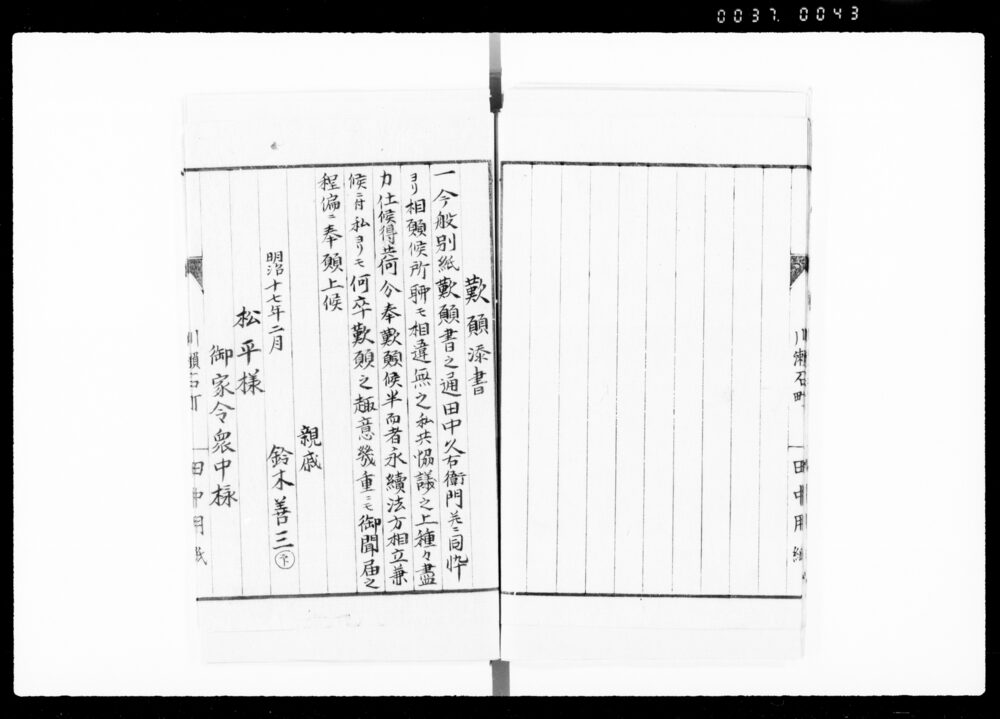 0037. 0043
川瀬石町
田中用紙
歎願添書
一今般別紙歎願書之通田中久右衛門并ニ同忰
ヨリ相願候所聊モ相違無之私共協議之上種々盡
力仕候得共何分奉歎願候半而者永續法方相立兼
候ニ付私ヨリモ何卒歎願之趣意幾重ニモ御聞届之
程偏ニ奉願上候
親戚
明治十七年二月
鈴木善三
松平様
御家令衆中様
川瀬石町
田中用紙